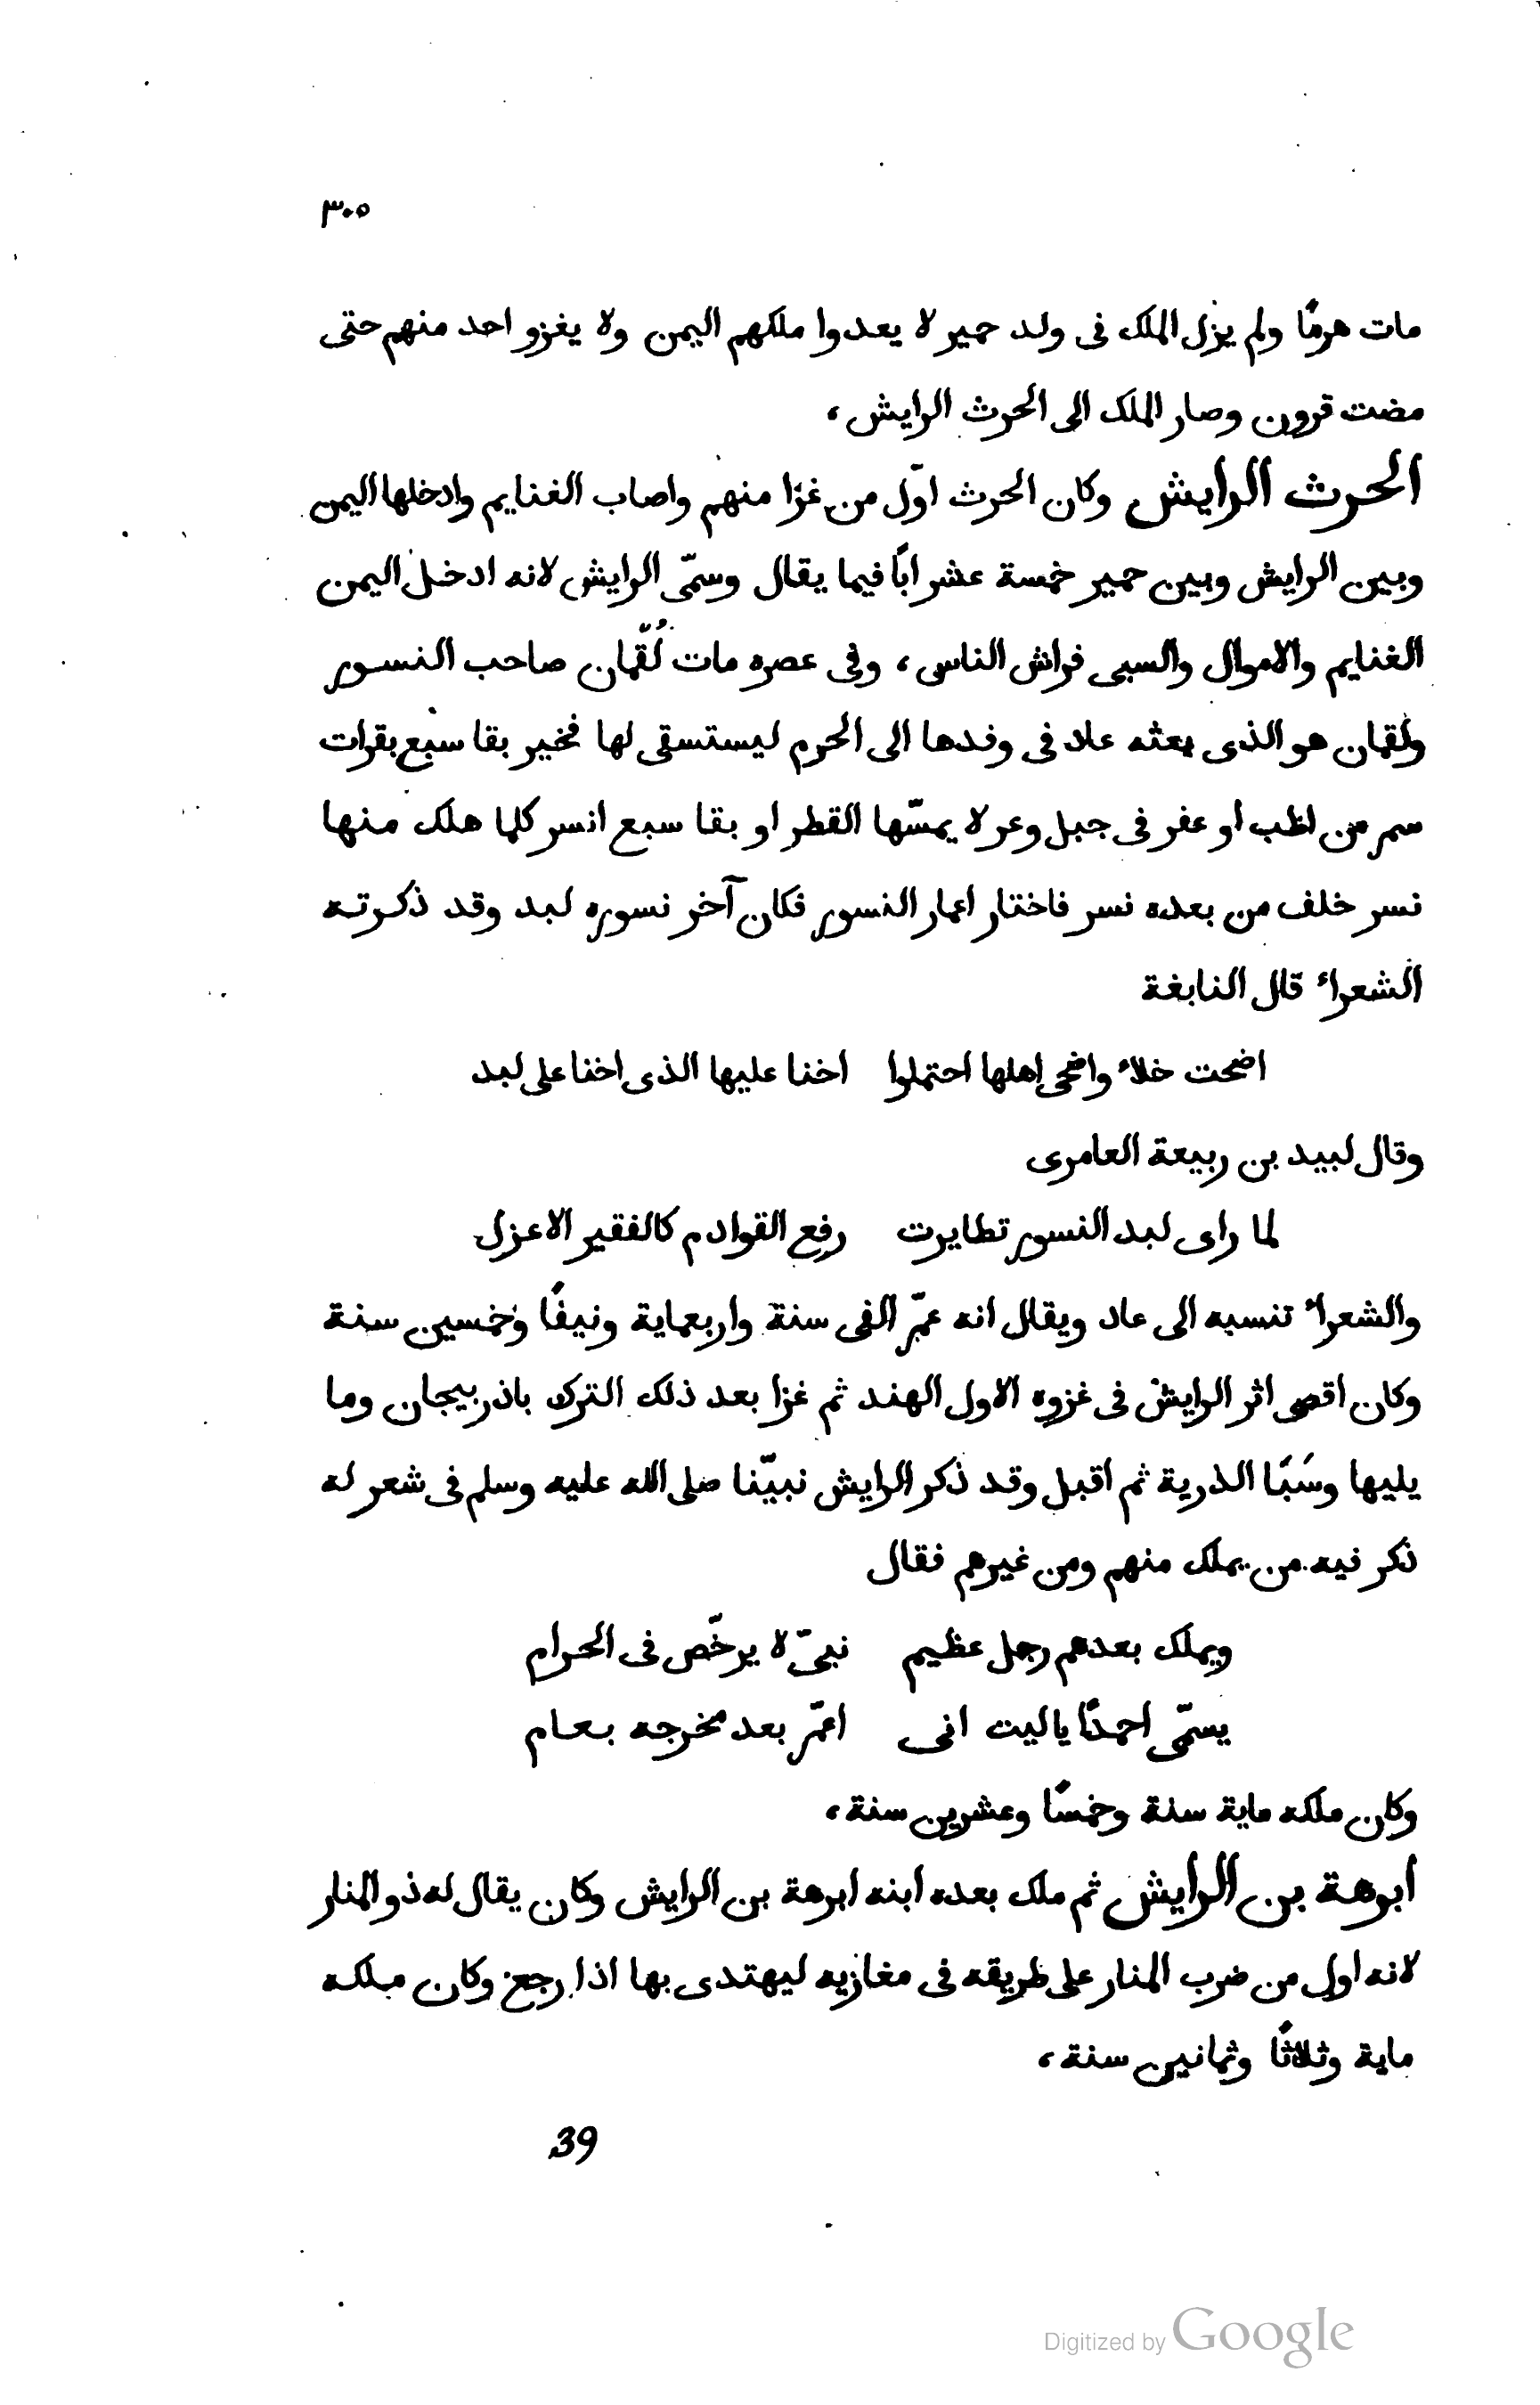 ٣٠٥
مات هرمًا ولم يزل الملك فى ولد حمير لا يعدوا ملكهم اليمن ولا يغزو احد منهم حتى
مضت قرون وصار الملك الى الحرث الرايش،
الحرث الرايش وكان الحرث اوّل من غزا منهم واصاب الغنايم وادخلها اليمن
وبين الرايش وبين حمير خمسة عشر ابًا فيما يقال وسمّى الرايش لانه ادخل اليمن
الغنايم والاموال والسبى فراش الناس، وفى عصره مات لُقّمان صاحب النسور
ولقمان هو الذى بعثه عاد فى وفدها الى الحرم ليستسقى لها فخير بقا سبع بقرات
سمر من اظب او عفر فى جبل وعر لا يمسّها القطر او بقا سبع انسر كلما هلك منها
نسر خلف من بعده نسر فاختار اعمار النسور فكان آخر نسوره لبد وقد ذكرته
الشعراء قال النابغة
اضحت خلاء واضحى اهلها احتملوا اخنا عليها الذى اخنا على لبد
وقال لبيد بن ربيعة العامرى
لما راى لبد النسور تطايرت رفع القوادم كالفقير الاعزل
والشعراء تنسبه الى عاد ويقال انه عمّر الفى سنة واربعماية ونيفًا وخمسين سنة
وكان اقصى اثر الرايش فى غزوه الاول الهند ثم غزا بعد ذلك الترك باذربيجان وما
يليها وسَبًا الذرية ثم اقبل وقد ذكر الرايش نبيّنا صلى الله عليه وسلم فى شعر له
ذكر فيه من يملك منهم ومن غيرهم فقال
ويملك بعدهم رجل عظيم نبىّ لا يرخّص فى الحرام
يسمّى احمدًا ياليت انى اعمّر بعد مخرجه بعام
وكان ملكه ماية سنة وخمسًا وعشرين سنة،
ابرهة بن الرايش ثم ملك بعده ابنه ابرهة بن الرايش وكان يقال له ذو المنار
لانه اول من ضرب المنار على طريقه فى مغازيه ليهتدى بها اذا رجع وكان ملكه
ماية وثلاثًا وثمانين سنة،
39
Digitized by Google